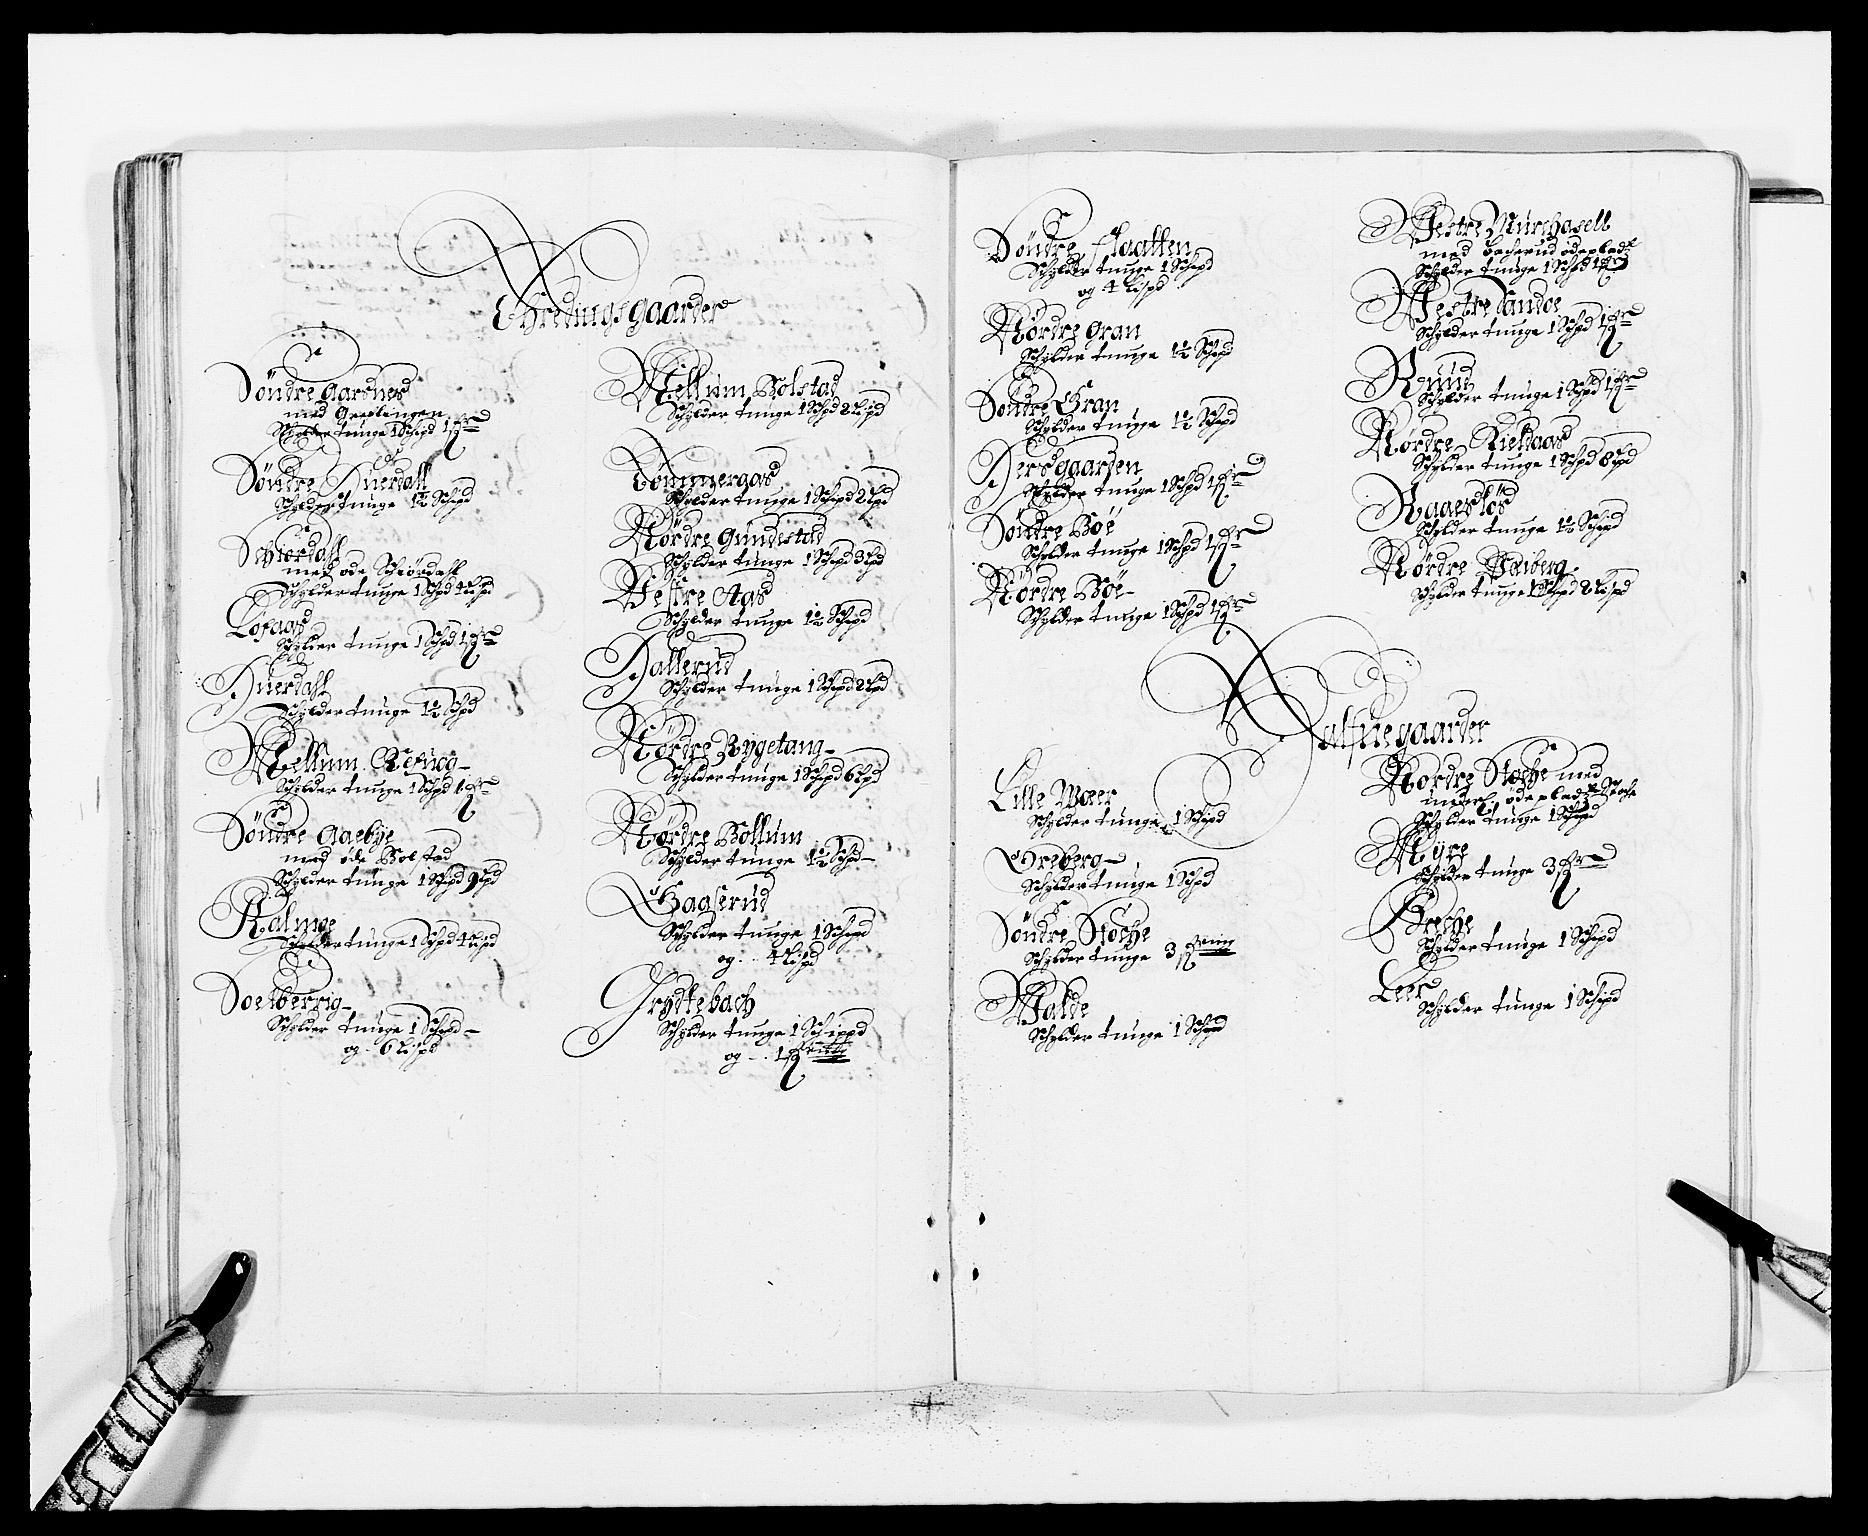 Thredingsgaarder
Söndre Aarsnes
med Greslingen
Schylder tunge 1 Schpd 1 fr
Söndre Huerdall
Schylder tunge 1½ Schpd
Schiørdahl
med øde Schiördahl
Schylder tunge 1 Schpd 4 Lispd
Lofaas
Schylder tunge 1 Schpd 1 fr
Huerdahl
Schylder tunge 1½ Schpd
Mellum Refuog
Schylder tunge 1 Schpd 1 fr
Söndre Gaebye
med øde Bolstad
Schylder tunge 1 Schpd 9 Lpd
Kalmoe
Schylder tunge 1 Schpd 4 Lispd
Soelberrig
Schylder tunge 1 Schpd
og 6 Lispd
Mellum Bolstad
Schylder tunge 1 Schpd 8 Lispd
Tömmeraas
Schylder tunge 1 Schpd 2 Lpd
Nördre Gundestad
Schylder tunge 1 Schpd 3 Lpd
Vestre Aas
Schylder tunge 1½ Schpd
Hallerud
Schylder tunge 1 Schpd 2 Lpd
Nördre Rygetang
Schylder tunge 1 Schpd 6 Lpd
Nördre Bollum
Schylder tunge 1½ Schpd
Haaserud
Schylder tunge 1 Schpd
og 4 Lispd
Grydtebach
Schylder tunge 1 Schippd
og 1 fr
Söndre Slaatten
Schylder tunge 1 Schpd
og 4 Lispd
Nördre Gran
Schylder tunge 1½ Schpd
Söndre Gran
Schylder tunge 1½ Schpd
Hersgaarden
Schylder tunge 1 Schpd 1 fr
Söndre Böe
Schylder tunge 1 Schpd 1 fr
Nördre Böe
Schylder tunge 1 Schpd 1 fr
Westre Murchasell
med øde plads
Schylder tunge 1 Schpd 1 fr
Westre Sandoe
Schylder tunge 1 Schpd 1 fr
Ruud
Schylder tunge 1 Schpd 1 fr
Nördre Kieldaas
Schylder tunge 1 Schpd 8 Lpd
Raaeslös
Schylder tunge 1½ Schpd
Nördre Weiberg
Schylder tunge 1 Schpd 2 Lispd
Halfuegaarder
Lille Waer
Schylder tunge 1 Schpd
Ehreberg
Schylder tunge 1 Schpd
Söndre Stoche
Schylder tunge 3 fr
Walde
Schylder tunge 1 Schpd
Nordre Stoche med
underl. øde plads Stoche
Schylder tunge 1 Schpd
Myre
Schylder tunge 3 fr
Breche
Schylder tunge 1 Schpd
Leer
Schylder tunge 1 Schpd